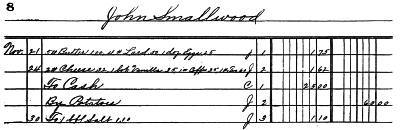 8
John Smallwood
Nov. 21 5# Butter 1.00 4# Lard .50 1 doz Eggs 25 J 1 1.75
24 2# Cheese 32 1 bot Vanilla 25 1# Coffee 35 1# J 2 1.62
To Cash C 1 25.00
By Potatoes J 2 60.00
30 To 1 bbl Salt 1.10 J 3 1.10